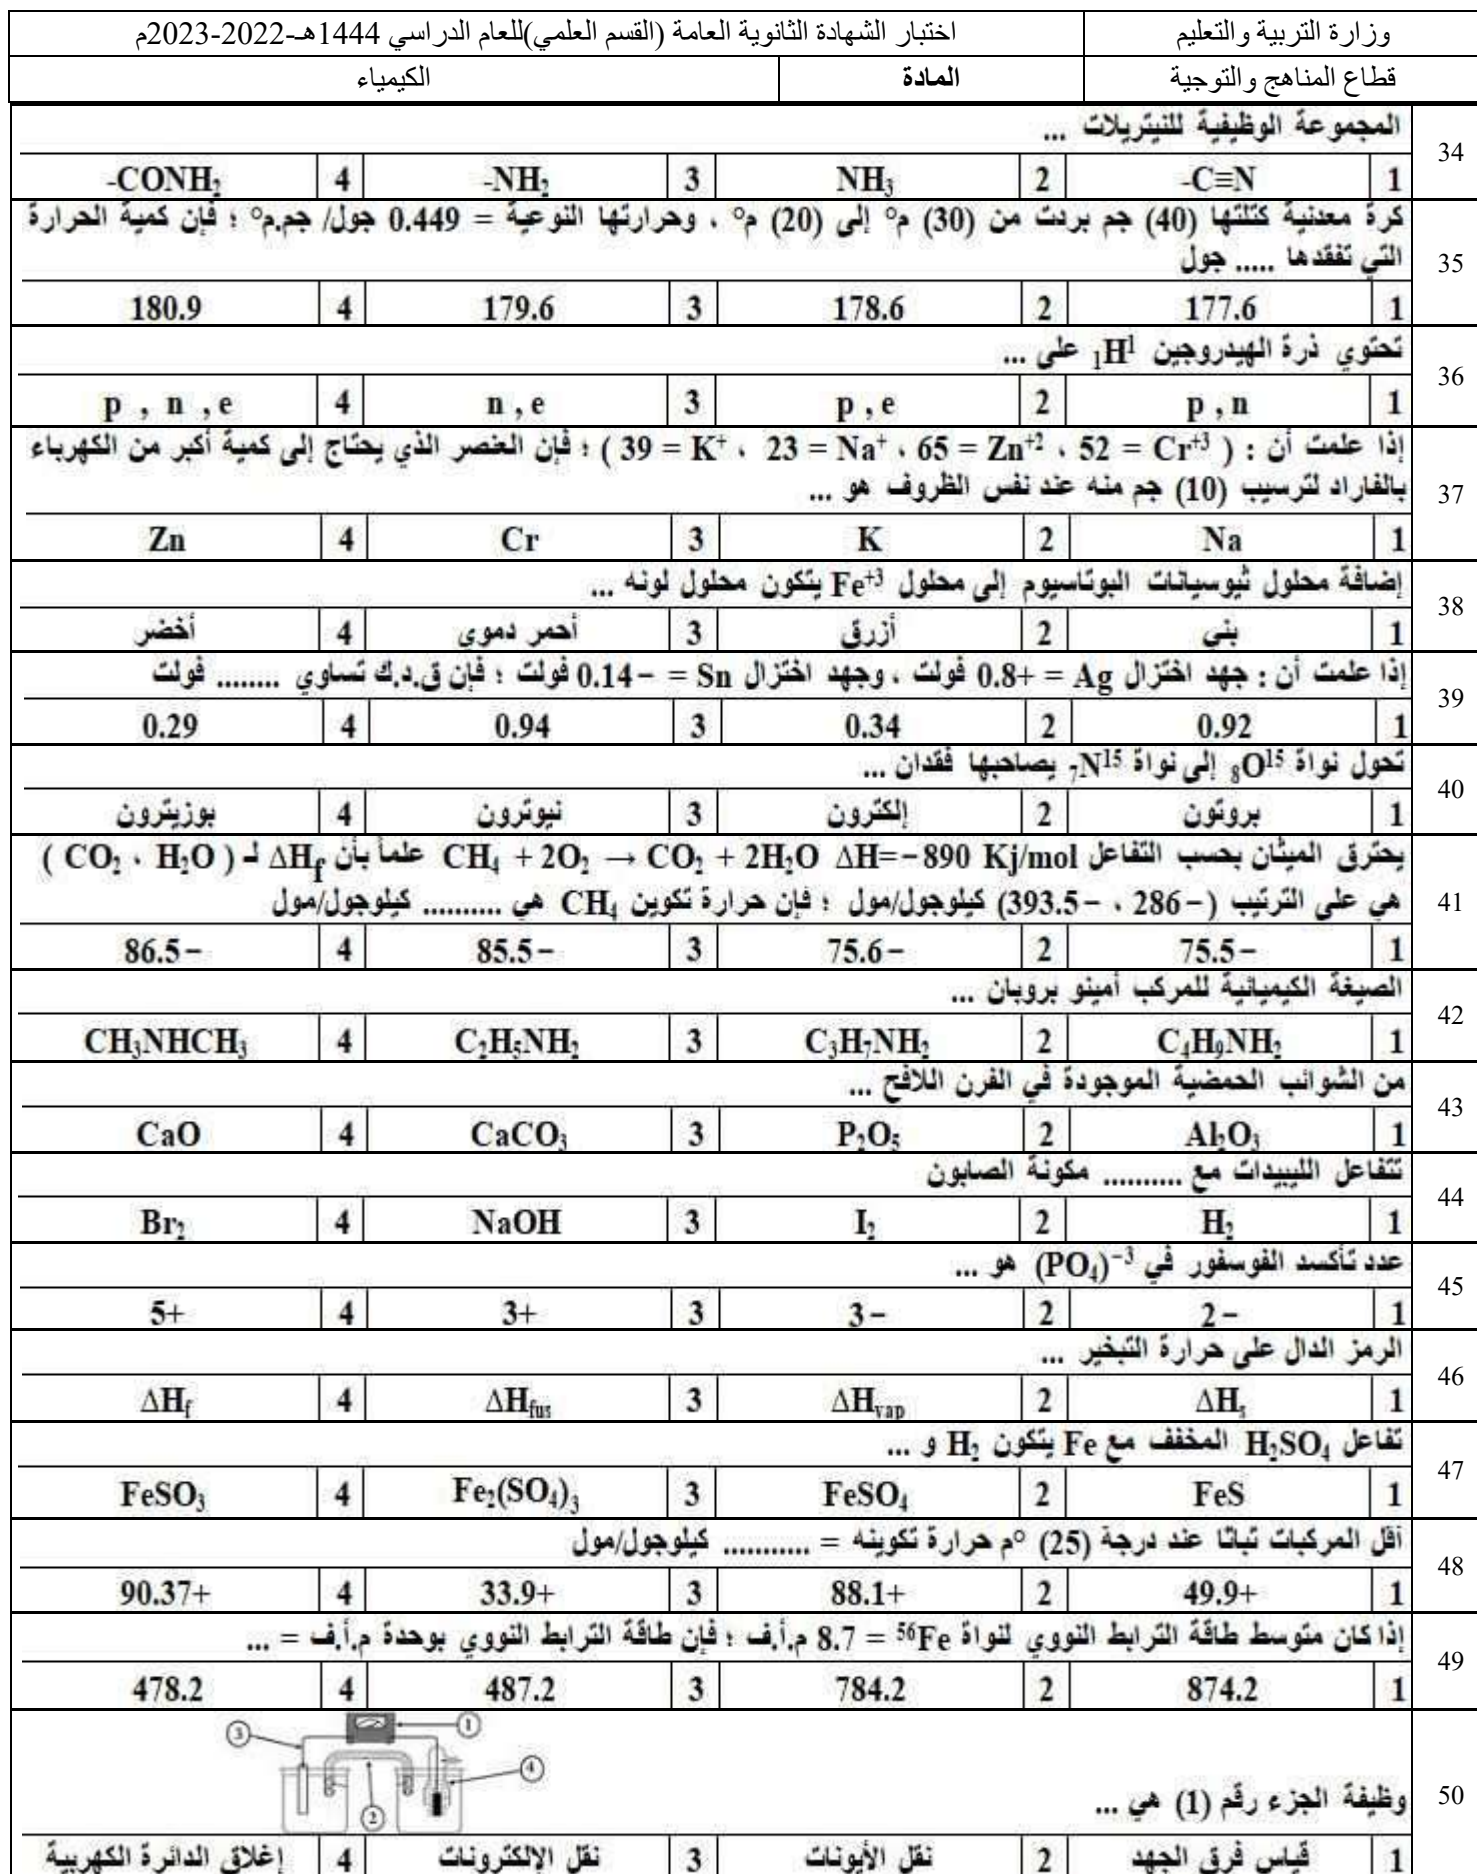 وزارة التربية والتعليم اختبار الشهادة الثانوية العامة (القسم العلمي)للعام الدراسي 1444هـ-2022-2023م
قطاع المناهج والتوجية المادة الكيمياء
34 المجموعة الوظيفية للنيتريلات ...
1 -C≡N 2 NH₃ 3 -NH₂ 4 -CONH₂
35 كرة معدنية كتلتها (40) جم بردت من (30) م° إلى (20) م° ، وحرارتها النوعية = 0.449 جول/ جم.م° ؛ فإن كمية الحرارة
التي تفقدها ..... جول
1 177.6 2 178.6 3 179.6 4 180.9
36 تحتوي ذرة الهيدروجين ₁H¹ على ...
1 p , n 2 p , e 3 n , e 4 p , n , e
37 إذا علمت أن : ( Cr⁺³ = 52 ، Zn⁺² = 65 ، Na⁺ = 23 ، K⁺ = 39 ) ؛ فإن العنصر الذي يحتاج إلى كمية أكبر من الكهرباء
بالفاراد لترسيب (10) جم منه عند نفس الظروف هو ...
1 Na 2 K 3 Cr 4 Zn
38 إضافة محلول ثيوسيانات البوتاسيوم إلى محلول Fe⁺³ يتكون محلول لونه ...
1 بني 2 أزرق 3 أحمر دموي 4 أخضر
39 إذا علمت أن : جهد اختزال Ag = +0.8 فولت ، وجهد اختزال Sn = −0.14 فولت ؛ فإن ق.د.ك تساوي ........ فولت
1 0.92 2 0.34 3 0.94 4 0.29
40 تحول نواة ₈O¹⁵ إلى نواة ₇N¹⁵ يصاحبها فقدان ...
1 بروتون 2 إلكترون 3 نيوترون 4 بوزيترون
41 يحترق الميثان بحسب التفاعل CH₄ + 2O₂ → CO₂ + 2H₂O ΔH=−890 Kj/mol علماً بأن ΔHf لـ ( CO₂ ، H₂O )
هي على الترتيب (−286 ، −393.5) كيلوجول/مول ؛ فإن حرارة تكوين CH₄ هي .......... كيلوجول/مول
1 75.5− 2 75.6− 3 85.5− 4 86.5−
42 الصيغة الكيميائية للمركب أمينو بروبان ...
1 C₄H₉NH₂ 2 C₃H₇NH₂ 3 C₂H₅NH₂ 4 CH₃NHCH₃
43 من الشوائب الحمضية الموجودة في الفرن اللافح ...
1 Al₂O₃ 2 P₂O₅ 3 CaCO₃ 4 CaO
44 تتفاعل الليبيدات مع .......... مكونة الصابون
1 H₂ 2 I₂ 3 NaOH 4 Br₂
45 عدد تأكسد الفوسفور في (PO₄)⁻³ هو ...
1 2− 2 3− 3 3+ 4 5+
46 الرمز الدال على حرارة التبخير ...
1 ΔHs 2 ΔHvap 3 ΔHfus 4 ΔHf
47 تفاعل H₂SO₄ المخفف مع Fe يتكون H₂ و ...
1 FeS 2 FeSO₄ 3 Fe₂(SO₄)₃ 4 FeSO₃
48 أقل المركبات ثباتا عند درجة (25) °م حرارة تكوينه = ........... كيلوجول/مول
1 49.9+ 2 88.1+ 3 33.9+ 4 90.37+
49 إذا كان متوسط طاقة الترابط النووي لنواة ⁵⁶Fe = 8.7 م.أ.ف ؛ فإن طاقة الترابط النووي بوحدة م.أ.ف = ...
1 874.2 2 784.2 3 487.2 4 478.2
1
3
4
2
50 وظيفة الجزء رقم (1) هي ...
1 قياس فرق الجهد 2 نقل الأيونات 3 نقل الإلكترونات 4 إغلاق الدائرة الكهربية